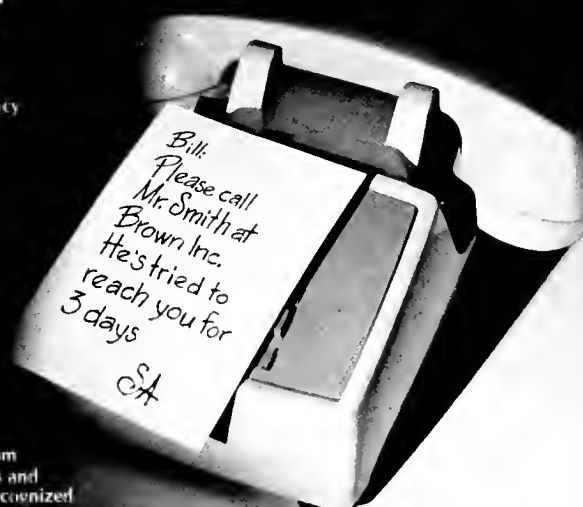 cy
Bill:
Please call
Mr. Smith at
Brown Inc.
He's tried to
reach you for
3 days
SA
m
s and
cognized